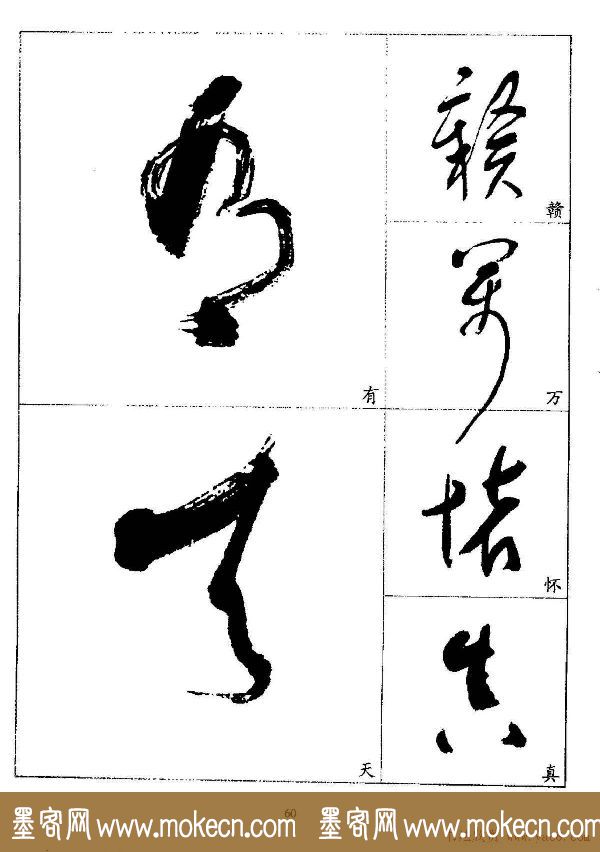 有
天
赣
万
怀
真
60
墨客网 www.mokecn.com 墨客网 www.mokecn.com